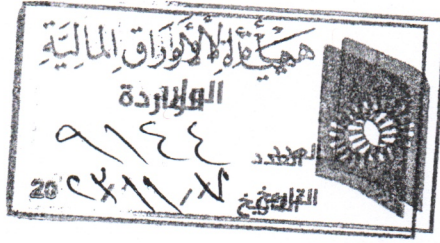 هيأة الأوراق المالية
الواردة
العدد ٩١٤٤
التاريخ 20